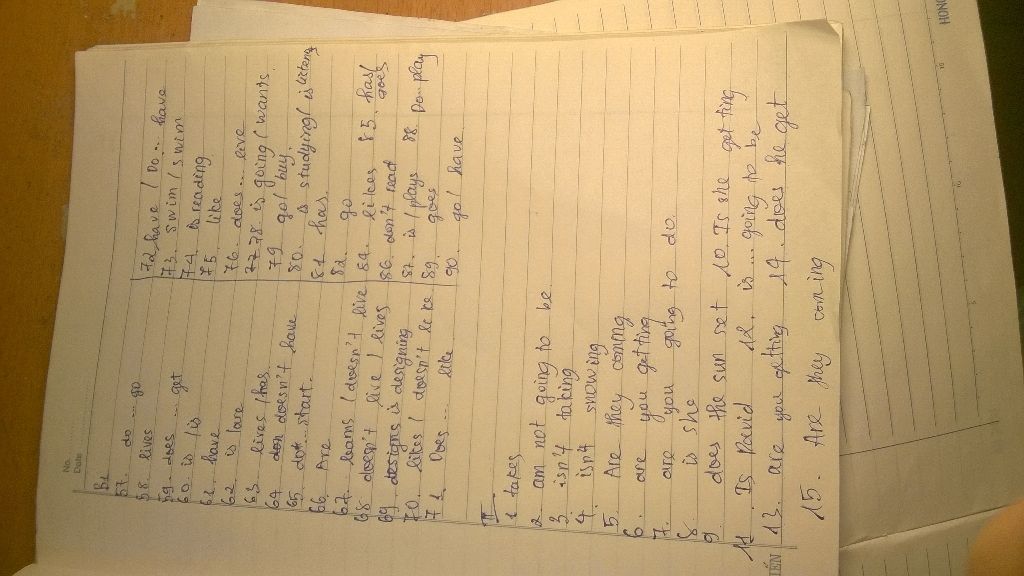 No.
Date
B1
57. do ... go
58. lives go
59. does ... get
60. is / is
61. have
62. is / are
63. lives / has
64. doesn't have
65. do start
66. Are
67. learns / doesn't live
68. doesn't live / lives
69. designs is designing
70. likes / doesn't like
71. Does ... like
72. have / Do ... have
73. swim / swim
74. is reading
75. like
76. does ... live
77. 78 is going / wants.
79. go / buy.
80. is studying / is listening
81. has
82. go
84. likes 85. has / goes
86. don't read
87. is / plays 88. Do play
89. goes
90. go / have
II.
1. takes
2. am not going to be
3. isn't taking
4. isn't snowing
5. Are they coming
6. are you getting
7. are you going to do
8. is she
9. does the sun set 10. Is she getting
11. Is David 12. is ... going to be
13. are you getting 14. does he get
15. Are they coming
TIẾN
HONG